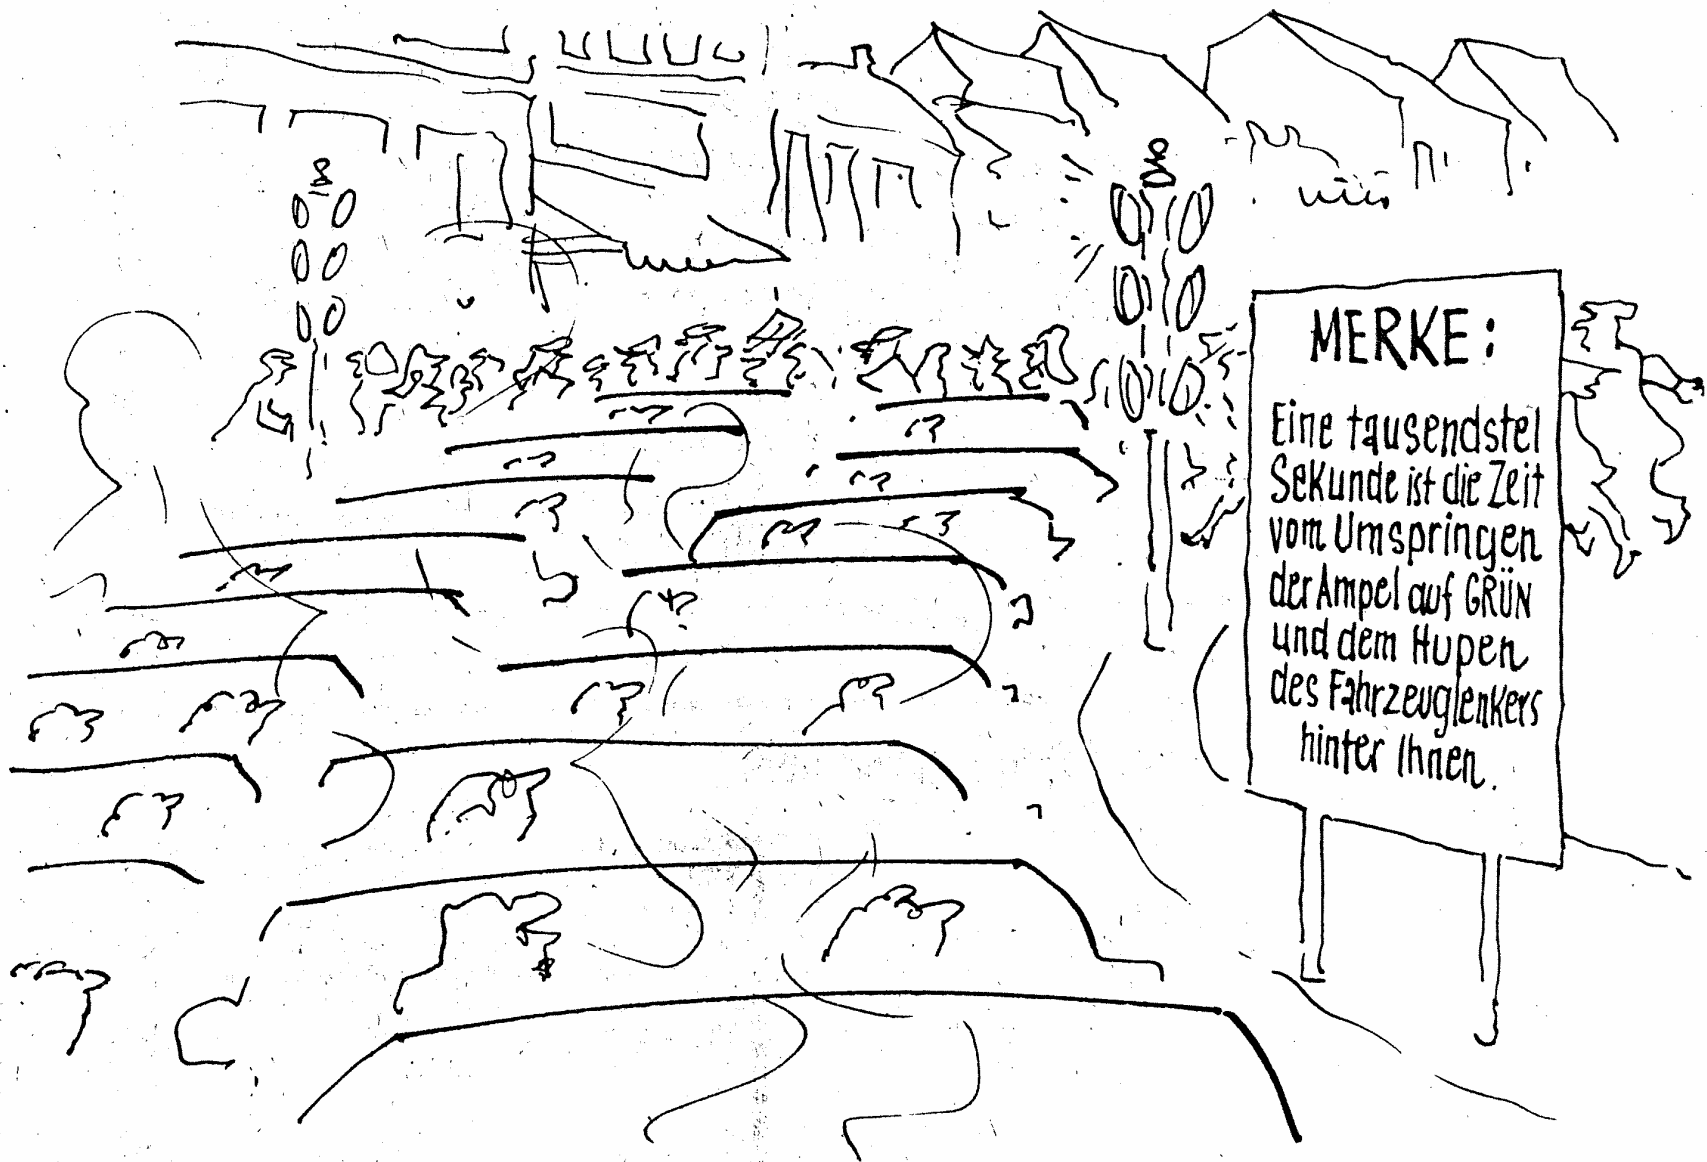 MERKE:
Eine tausendstel
Sekunde ist die Zeit
vom Umspringen
der Ampel auf GRÜN
und dem Hupen
des Fahrzeuglenkers
hinter Ihnen.